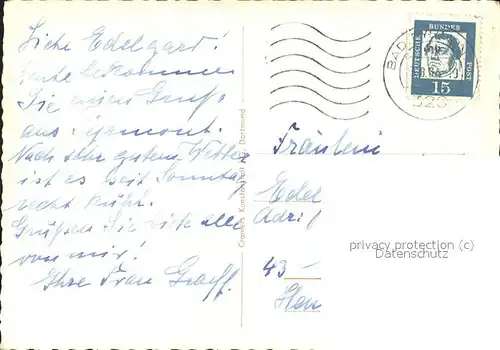 Liebe Edelgard!
heute bekommen
Sie einen Gruß
aus Pyrmont.
Nach sehr gutem Wetter
ist es seit Sonntag
recht kühl.
Grüßen Sie bitte alle
von mir!
Ihre Frau Graeff.
Cramers Kunstanstalt Dortmund
BAD
DEUTSCHE BUNDES POST
15
Fräulein
Edel
Adri
43 —
Han
privacy protection (c)
Datenschutz